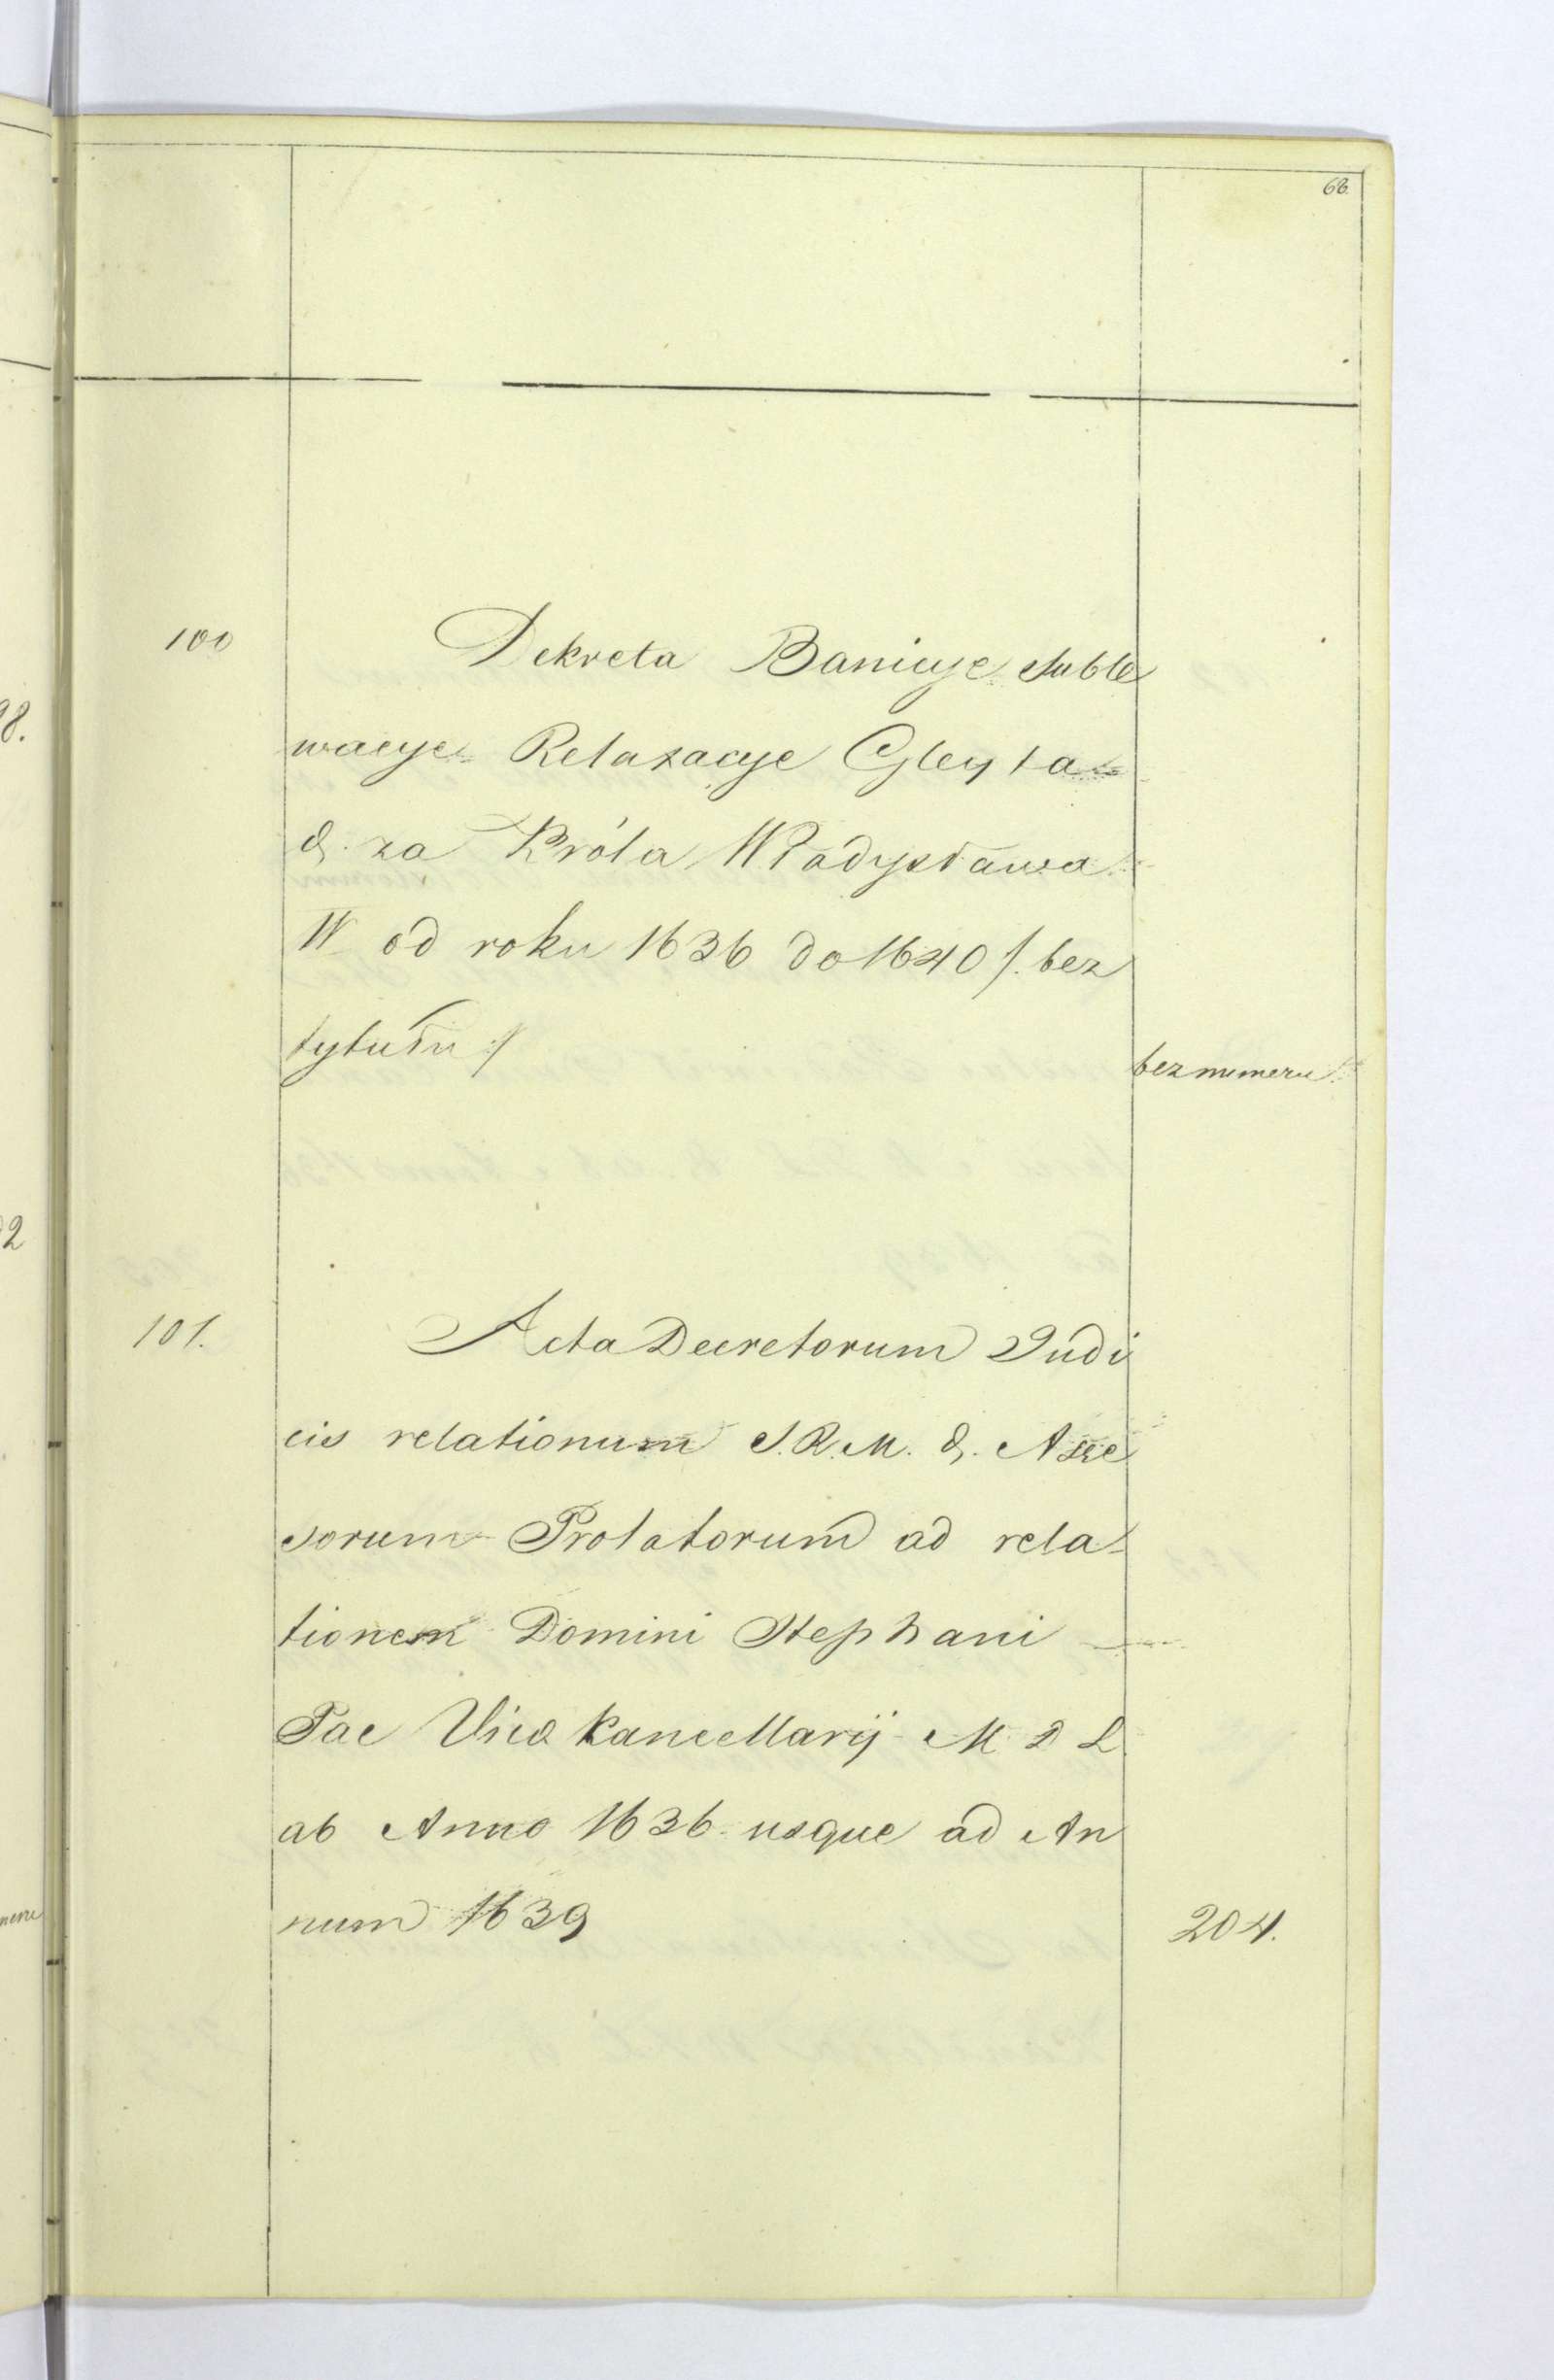 68.
100 Dekreta Banicye Suble
wacye Relaxacye Gleyta
& za Króla Władysława
IV od roku 1636 do 1640 /. bez
tytułu ./ bez numeru
101. Acta Decretorum Judi
cis relationum S. R. M. & Asse
sorum Prolatorum ad rela-
tionem Domini Stephani
Pac Vice Kancellarij M D L
ab Anno 1636 usque ad An
num 1639 204.
8.
2